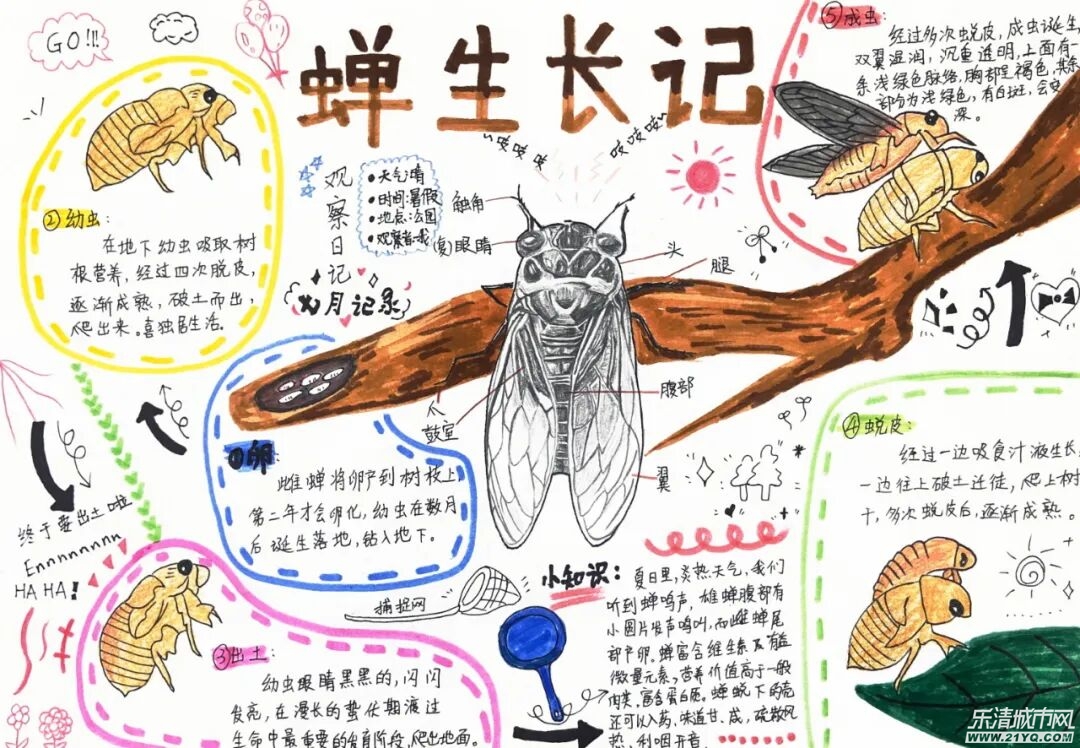 GO!!!
蝉生长记
吱吱吱吱
吱吱吱
观察日记
•天气:晴
•时间:暑假
•地点:公园
•观察者:我
月记录
触角
(复)眼睛
头
腿
腹部
鼓室
翼
①卵:
雌蝉将卵产到树枝上
第二年才会卵化,幼虫在数月
后诞生落地,钻入地下。
②幼虫:
在地下幼虫吸取树
根营养,经过四次脱皮,
逐渐成熟,破土而出,
爬出来。喜独居生活。
终于要出土啦
Ennnnnnnn
HA HA!
③出土:
幼虫眼睛黑黑的,闪闪
发亮,在漫长的蛰伏期渡过
生命中最重要的发育阶段,爬出地面。
④蜕皮:
经过一边吸食汁液生长,
一边往上破土迁徒,爬上树
干,多次蜕皮后,逐渐成熟。
⑤成虫:
经过多次蜕皮,成虫诞生,
双翼湿润,沉重透明,上面有一
条浅绿色脉络,胸部呈褐色,其余
部分为浅绿色,有白斑,会变
深。
捕捉网
小知识:
夏日里,炎热天气,我们
听到蝉鸣声,雄蝉腹部有
小圆片发声鸣叫,而雌蝉尾
部产卵。蝉富含维生素及有益
微量元素,营养价值高于一般
肉类,富含蛋白质。蝉蜕下的壳
还可以入药,味道甘、咸,疏散风
热、利咽开音。
乐清城市网
www.21YQ.COM